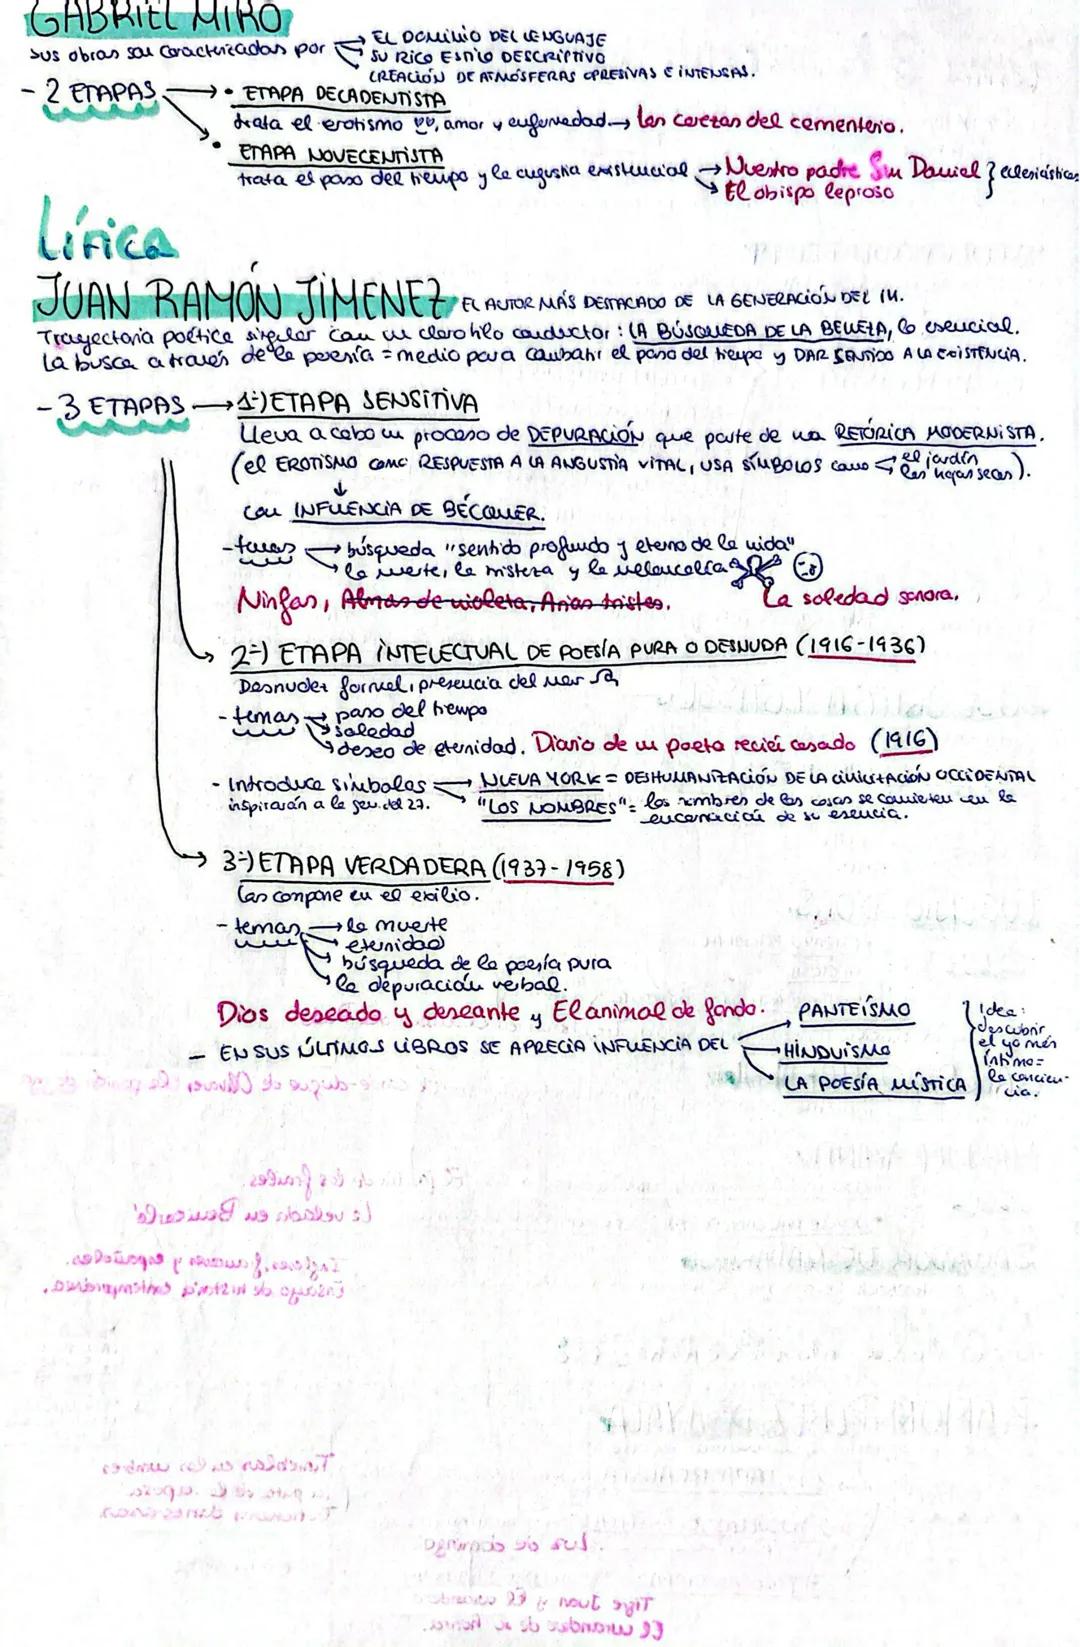 GABRIEL MIRÓ
sus obras son caracterizadas por → EL DOMINIO DEL LENGUAJE
→ SU RICO ESTILO DESCRIPTIVO
CREACIÓN DE ATMÓSFERAS OPRESIVAS E INTENSAS.
- 2 ETAPAS → • ETAPA DECADENTISTA
trata el erotismo, amor y enfermedad → Las cerezas del cementerio.
• ETAPA NOVECENTISTA
trata el paso del tiempo y la angustia existencial → Nuestro padre San Daniel } eclesiásticas
→ El obispo leproso
Lírica
JUAN RAMÓN JIMENEZ EL AUTOR MÁS DESTACADO DE LA GENERACIÓN DEL 14.
Trayectoria poética singular con un claro hilo conductor: LA BÚSQUEDA DE LA BELLEZA, lo esencial.
La busca a través de la poesía = medio para combatir el paso del tiempo y DAR SENTIDO A LA EXISTENCIA.
- 3 ETAPAS → 1-) ETAPA SENSITIVA
Lleva a cabo un proceso de DEPURACIÓN que parte de una RETÓRICA MODERNISTA.
(el EROTISMO COMO RESPUESTA A LA ANGUSTIA VITAL, USA SÍMBOLOS como el jardín
las hojas secas).
↓
con INFLUENCIA DE BÉCQUER.
- temas → búsqueda "sentido profundo y eterno de la vida"
→ la muerte, la tristeza y la melancolía
Ninfas, Almas de violeta, Arias tristes. La soledad sonora.
2-) ETAPA INTELECTUAL DE POESÍA PURA O DESNUDA (1916-1936)
Desnudez formal, presencia del mar
- temas → paso del tiempo
→ soledad
→ deseo de eternidad. Diario de un poeta recién casado (1916)
- Introduce símbolos → NUEVA YORK = DESHUMANIZACIÓN DE LA CIVILIZACIÓN OCCIDENTAL
inspirarán a la gen. del 27. → "LOS NOMBRES" = los nombres de las cosas se convierten en la
encarnación de su esencia.
3-) ETAPA VERDADERA (1937-1958)
Las compone en el exilio.
- temas → la muerte
→ eternidad
→ búsqueda de la poesía pura
→ la depuración verbal.
Dios deseado y deseante y El animal de fondo.
- EN SUS ÚLTIMOS LIBROS SE APRECIA INFLUENCIA DEL → PANTEÍSMO
→ HINDUISMO
→ LA POESÍA MÍSTICA
} Idea:
descubrir
el yo más
íntimo =
la concien-
cia.